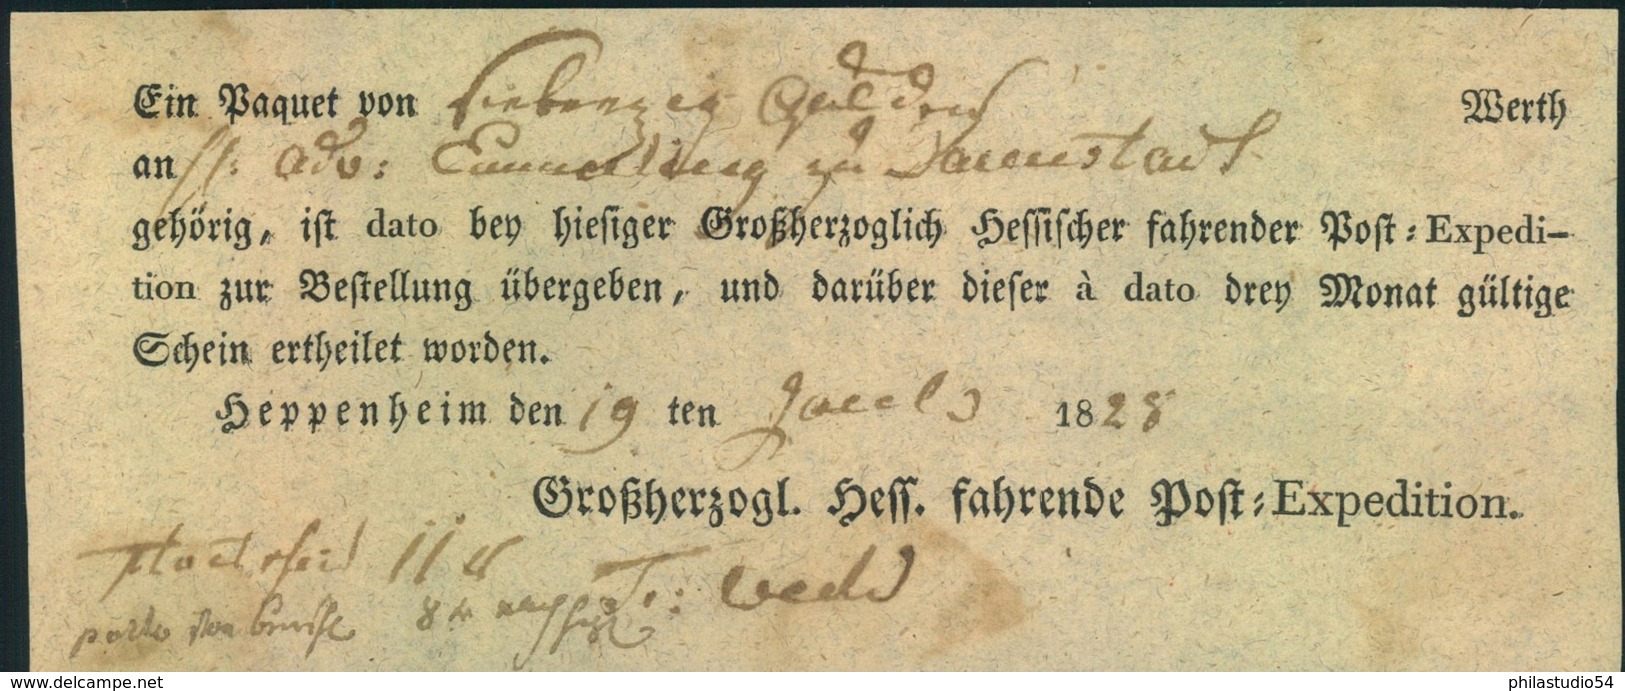 Ein Paquet von siebenzig Gulden Werth
an H: Adv: Emmerling zu Darmstadt
gehörig, ist dato bey hiesiger Großherzoglich Hessischer fahrender Post-Expedi-
tion zur Bestellung übergeben, und darüber dieser à dato drey Monat gültige
Schein ertheilet worden.
Heppenheim den 19 ten 1828
Großherzogl. Hess. fahrende Post-Expedition.
porto von
www.delcampe.net philastudio54